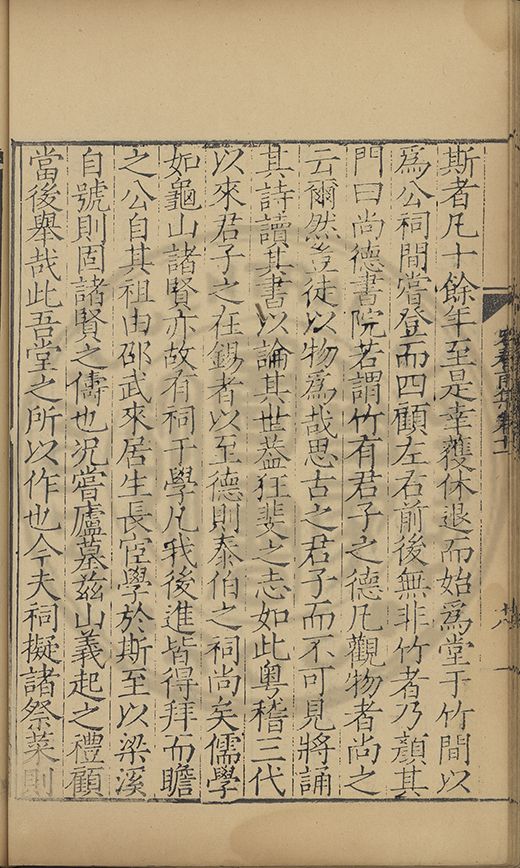 斯者凡十餘年至是幸獲休退而始爲堂于竹間以
爲公祠間嘗登而四顧左右前後無非竹者乃顏其
門曰尚德書院若謂竹有君子之德凡觀物者尚之
云爾然豈徒以物爲哉思古之君子而不可見將誦
其詩讀其書以論其世蓋狂斐之志如此粵稽三代
以來君子之在錫者以至德則泰伯之祠尚矣儒學
如龜山諸賢亦故有祠于學凡我後進皆得拜而瞻
之公自其祖由邵武來居生長宦學於斯至以梁溪
自號則固諸賢之儔也況嘗廬墓茲山義起之禮顧
當後舉哉此吾堂之所以作也今夫祠擬諸祭菜則